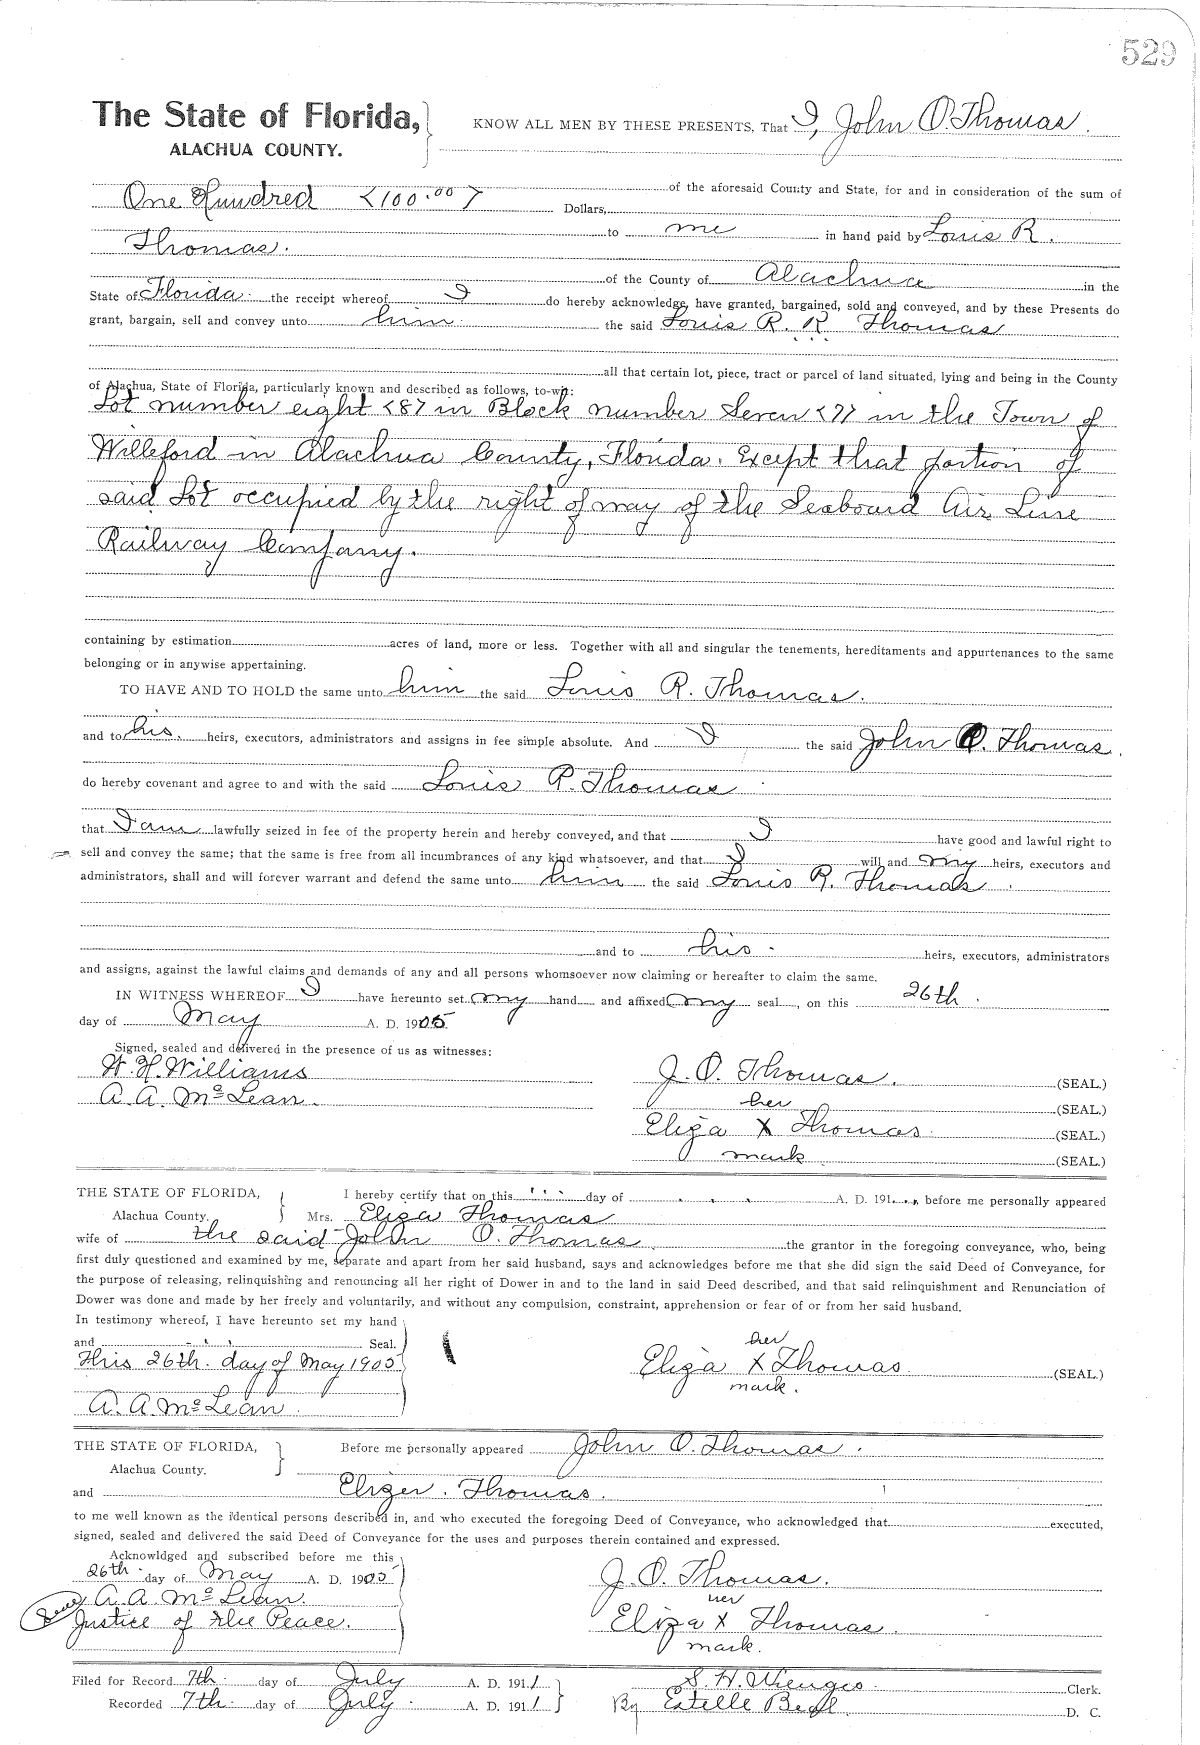 529
The State of Florida, KNOW ALL MEN BY THESE PRESENTS, That I, John O. Thomas.
ALACHUA COUNTY.
of the aforesaid County and State, for and in consideration of the sum of
One Hundred <100.00> Dollars,
to me in hand paid by Louis R.
Thomas.
of the County of Alachua in the
State of Florida. the receipt whereof I do hereby acknowledge, have granted, bargained, sold and conveyed, and by these Presents do
grant, bargain, sell and convey unto him the said Louis R. R. Thomas
all that certain lot, piece, tract or parcel of land situated, lying and being in the County
of Alachua, State of Florida, particularly known and described as follows, to-wit:
Lot number eight <8> in Block number Seven <7> in the Town of
Willeford in Alachua County, Florida. Except that portion of
said Lot occupied by the right of way of the Seaboard Air Line
Railway Company.
containing by estimation acres of land, more or less. Together with all and singular the tenements, hereditaments and appurtenances to the same
belonging or in anywise appertaining.
TO HAVE AND TO HOLD the same unto him the said Louis R. Thomas.
and to his heirs, executors, administrators and assigns in fee simple absolute. And I the said John O. Thomas.
do hereby covenant and agree to and with the said Louis R. Thomas
that I am lawfully seized in fee of the property herein and hereby conveyed, and that I have good and lawful right to
sell and convey the same; that the same is free from all incumbrances of any kind whatsoever, and that I will and my heirs, executors and
administrators, shall and will forever warrant and defend the same unto him the said Louis R. Thomas
and to his heirs, executors, administrators
and assigns, against the lawful claims and demands of any and all persons whomsoever now claiming or hereafter to claim the same.
IN WITNESS WHEREOF I have hereunto set my hand and affixed my seal, on this 26th
day of May A. D. 1905
Signed, sealed and delivered in the presence of us as witnesses:
W. H. Williams J. O. Thomas. (SEAL.)
A. A. McLean. her (SEAL.)
Eliza X Thomas (SEAL.)
mark (SEAL.)
THE STATE OF FLORIDA, I hereby certify that on this day of A. D. 191 , before me personally appeared
Alachua County. Mrs. Eliza Thomas
wife of the said John O. Thomas the grantor in the foregoing conveyance, who, being
first duly questioned and examined by me, separate and apart from her said husband, says and acknowledges before me that she did sign the said Deed of Conveyance, for
the purpose of releasing, relinquishing and renouncing all her right of Dower in and to the land in said Deed described, and that said relinquishment and Renunciation of
Dower was done and made by her freely and voluntarily, and without any compulsion, constraint, apprehension or fear of or from her said husband.
In testimony whereof, I have hereunto set my hand
and Seal. her
This 26th. day of May 1905 Eliza X Thomas (SEAL.)
mark.
A. A. McLean.
THE STATE OF FLORIDA, Before me personally appeared John O. Thomas.
Alachua County.
and Elizer. Thomas.
to me well known as the identical persons described in, and who executed the foregoing Deed of Conveyance, who acknowledged that executed,
signed, sealed and delivered the said Deed of Conveyance for the uses and purposes therein contained and expressed.
Acknowldged and subscribed before me this
26th day of May A. D. 1905 J. O. Thomas.
A. A. McLean. her
Justice of the Peace. Eliza X Thomas.
mark.
Filed for Record 7th day of July A. D. 1911 S. H. Clerk.
Recorded 7th day of July A. D. 1911 By Estelle D. C.